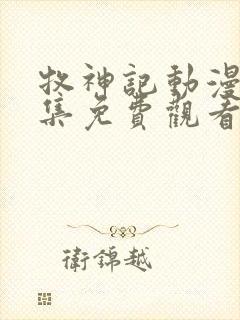 牧神記動漫
集免費觀看
衛錦越